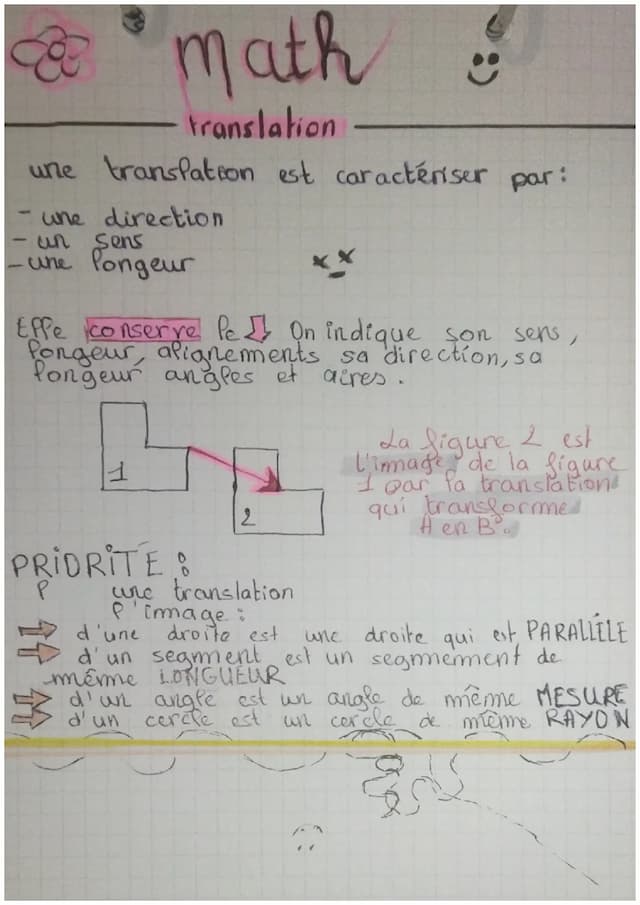 math
translation
une translation est caractériser par:
- une direction
- un sens
- une longeur
Elle conserve le On indique son sens,
longeur, alignements sa direction, sa
longeur angles et aires.
1
2
La figure 2 est
l'immage de la figure
1 par la translation
qui transforme
A en B.
PRiORiTÉ :
P une translation
l'image:
d'une droite est une droite qui est PARALLÉLE
d'un segment est un segmnement de
même LONGUEUR
d'un angle est un angle de même MESURE
d'un cercle est un cercle de même RAYON